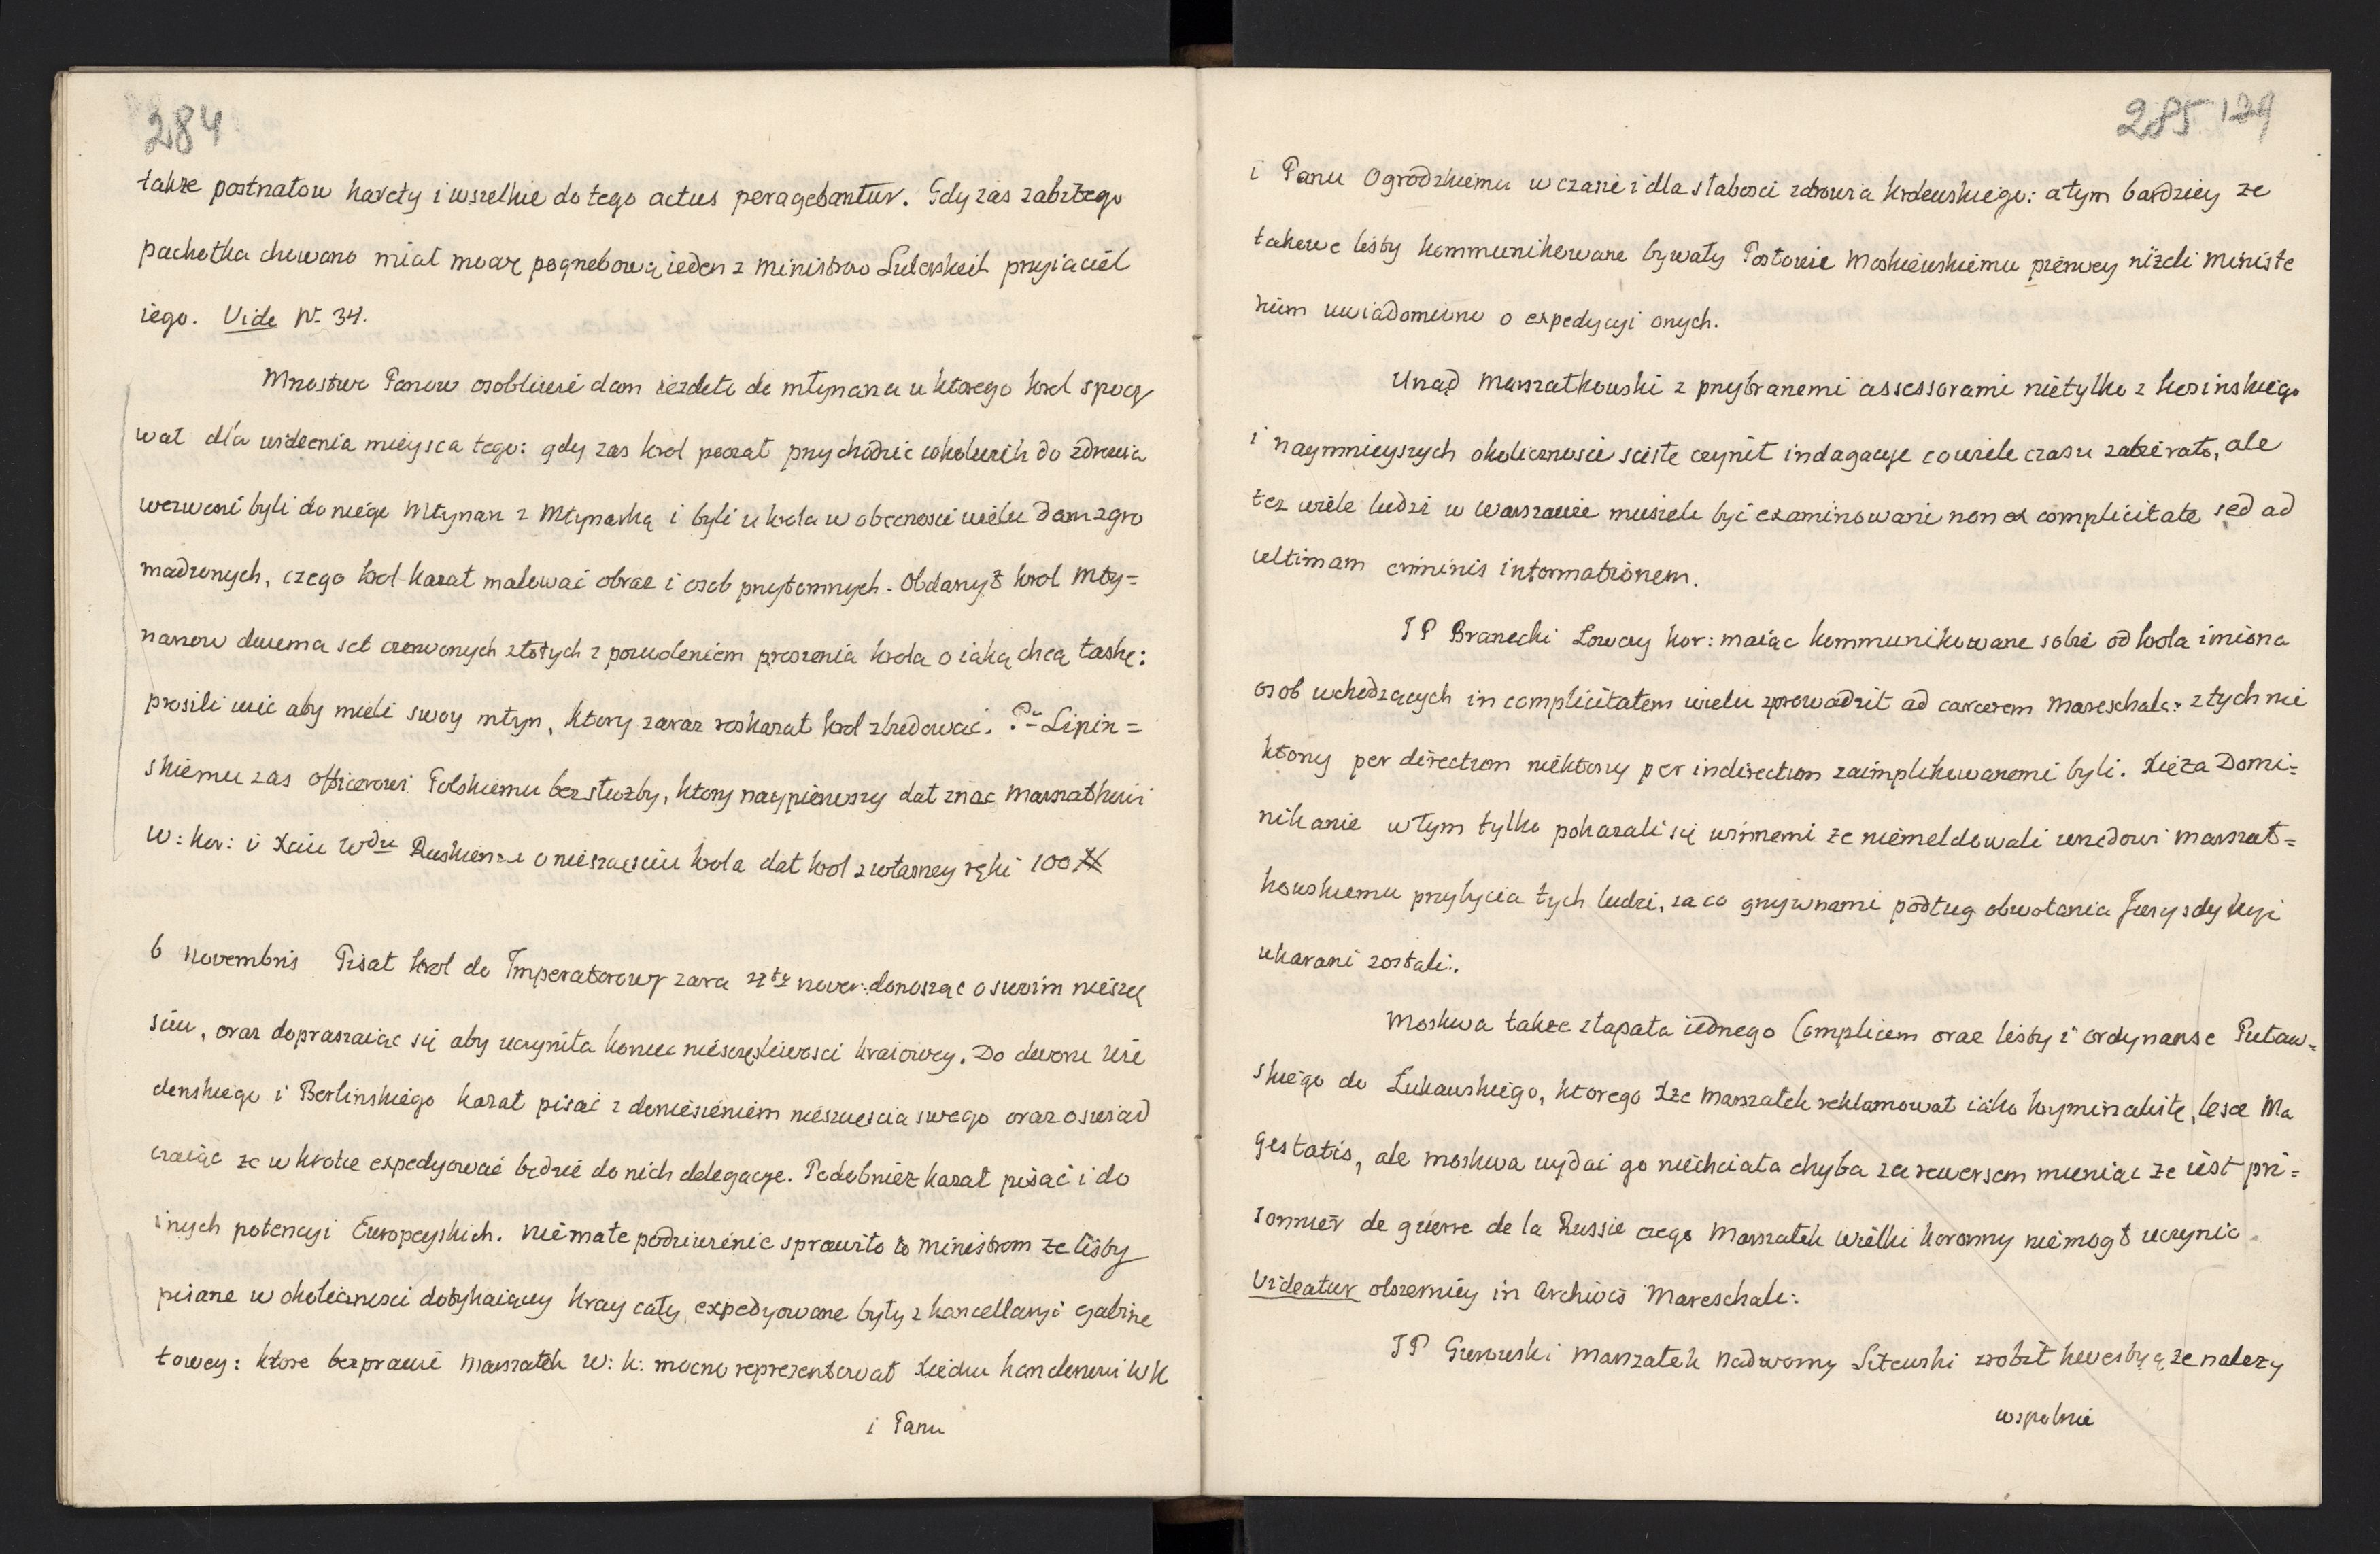 284
takze postnatow karety i wszelkie do tego actus peragebantur. Gdy zas zabitego
pachołka chowano miał mowę pogrzebową ieden z ministrow Luterskich przyiaciel
iego. Vide N. 34.
Mnostwo Panow osobliwie dam iezdeło do młynarza u ktorego krol spoczy
wał dla widzenia mieysca tego: gdy zas krol począł przychodzić cokolwiek do zdrowia
wezwani byli do niego Młynarz z Młynarką i byli u krola w obecnosci wielu Dam zgro
madzonych, czego krol kazał malować obraz i osob przytomnych. Obdarzył krol Mły=
narzow dwuma set czerwonych złotych z pozwoleniem proszenia krola o iaką chcą łaskę:
prosili wię aby mieli swoy młyn, ktory zaraz roskazał krol zbudować. Pu Lipin=
skiemu zas officerowi Polskiemu bez służby, ktory naypierwszy dał znac Marszałkowi
W: kor: i Xciu Wdzie Ruskiemu o nieszczęsciu krola dał krol z własney ręki 100 #
6 Novembris Pisał krol do Imperatorowy zara 4ta nover: donosząc o swoim nieszczę
sciu, oraz dopraszaiąc się aby uczyniła koniec niesczęsliwosci kraiowey. Do dworu Wie
denskiego i Berlinskiego kazał pisać z doniesieniem nieszczęscia swego oraz oswiad
czaiąc ze w krotce expedyować będzie do nich delegacye. Podobniez kazał pisać i do
inych potencyi Europeyskich. Niemałe podziwienie sprawiło to ministrom ze listy
pisane w okolicznosci dotykaiącey kray cały, expedyowane były z kancellaryi gabine
towey: ktore bezprawie Marszałek W: K: mocno reprezentował Xiedzu kanclerzowi WK
i Panu
285 129
i Panu Ogrodzkiemu w czasie i dla słabosci zdrowia krolewskiego: a tym bardziey ze
takowe listy kommunikowane bywały Posłowie Moskiewskiemu pierwey nizeli Ministe
rium uwiadomiono o expedycyi onych.
Urząd Marszałkowski z przybranemi assessorami nietylko z kosinskiego
i naymnieyszych okolicznosci scisłe czynił indagacye co wiele czasu zabierało, ale
tez wiele ludzi w Warszawie musieli być examinowani non ex complicitate sed ad
ultimam criminis informationem.
JP Branecki Łowczy kor: maiąc kommunikowane sobie od krola imiona
osob wchodzących in complicitatem wielu zprowadził ad carcerem Mareschale: z tych nie
ktorzy per directum niektorzy per indirectum zaimplikowanemi byli. Xięza Domi=
nikanie w tym tylko pokazali się winnemi ze niemeldowali urzędowi Marszał=
kowskiemu przybycia tych ludzi, za co grzywnami podług obwołania Jurysdykcyi
ukarani zostali.
Moskwa takze złapała iednego Complicem oraz listy i ordynanse Puław=
skiego do Łukawskiego, ktorego Xze Marszałek reklamował iako kryminalistę, lesæ Ma
gestatis, ale Moskwa wydać go niechciała chyba za rewersem mieniąc ze iest pri=
sonnier de guerre de la Russie czego Marszałek Wielki koronny niemogł uczynic.
Videatur obszerniey in Archivis Mareschale:
JP Gurowski Marszałek Nadworny Litewski zrobił kwestyą ze nalezy
wspolnie